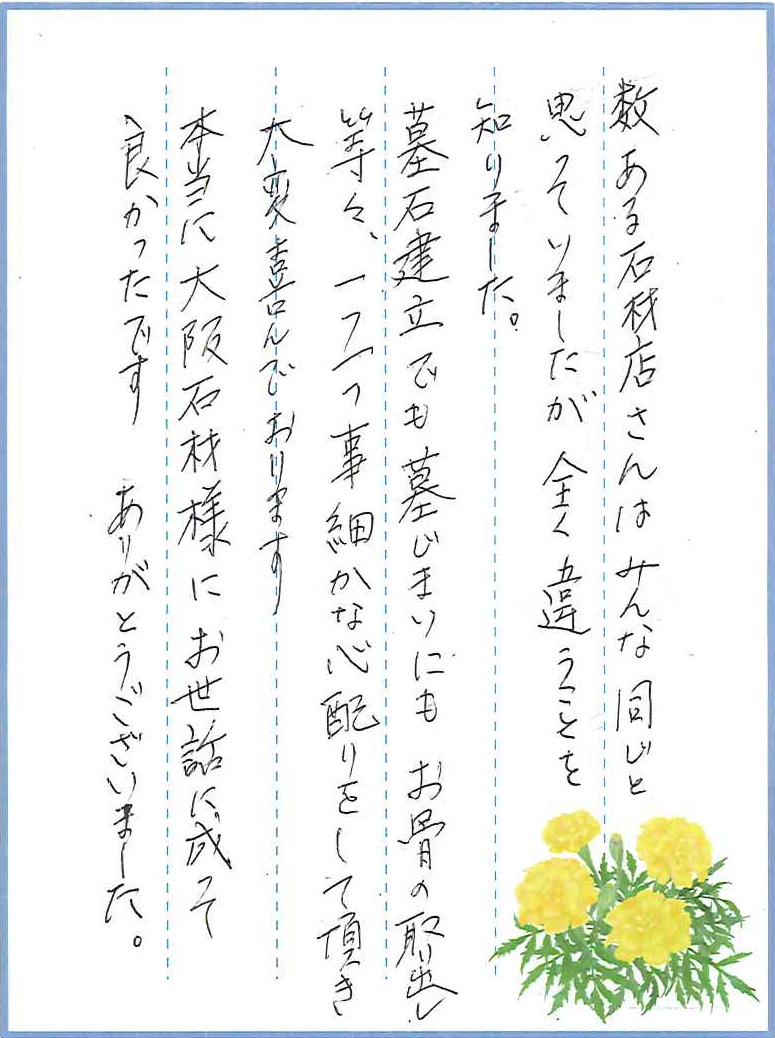 数ある石材店さんはみんな同じと
思っていましたが全く違うことを
知りました。
墓石建立でも墓じまいにもお骨の取り出し
等々、一つ一つ事細かな心配りをして頂き
大変喜んでおります
本当に大阪石材様にお世話に成って
良かったです ありがとうございました。